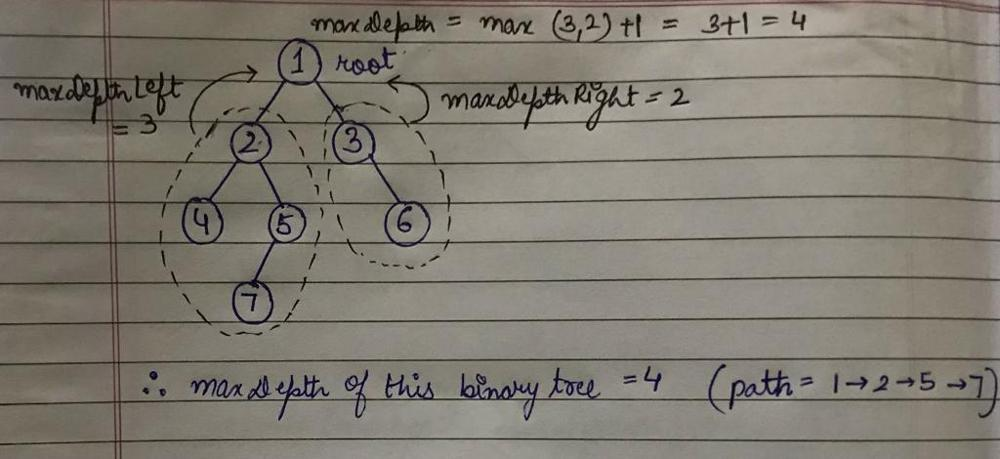 maxDepth = max (3,2) +1 = 3+1 = 4
1 root
maxDepthLeft
= 3
maxDepthRight = 2
2 3
4 5 6
7
∴ maxDepth of this binary tree = 4 (path = 1→2→5→7)